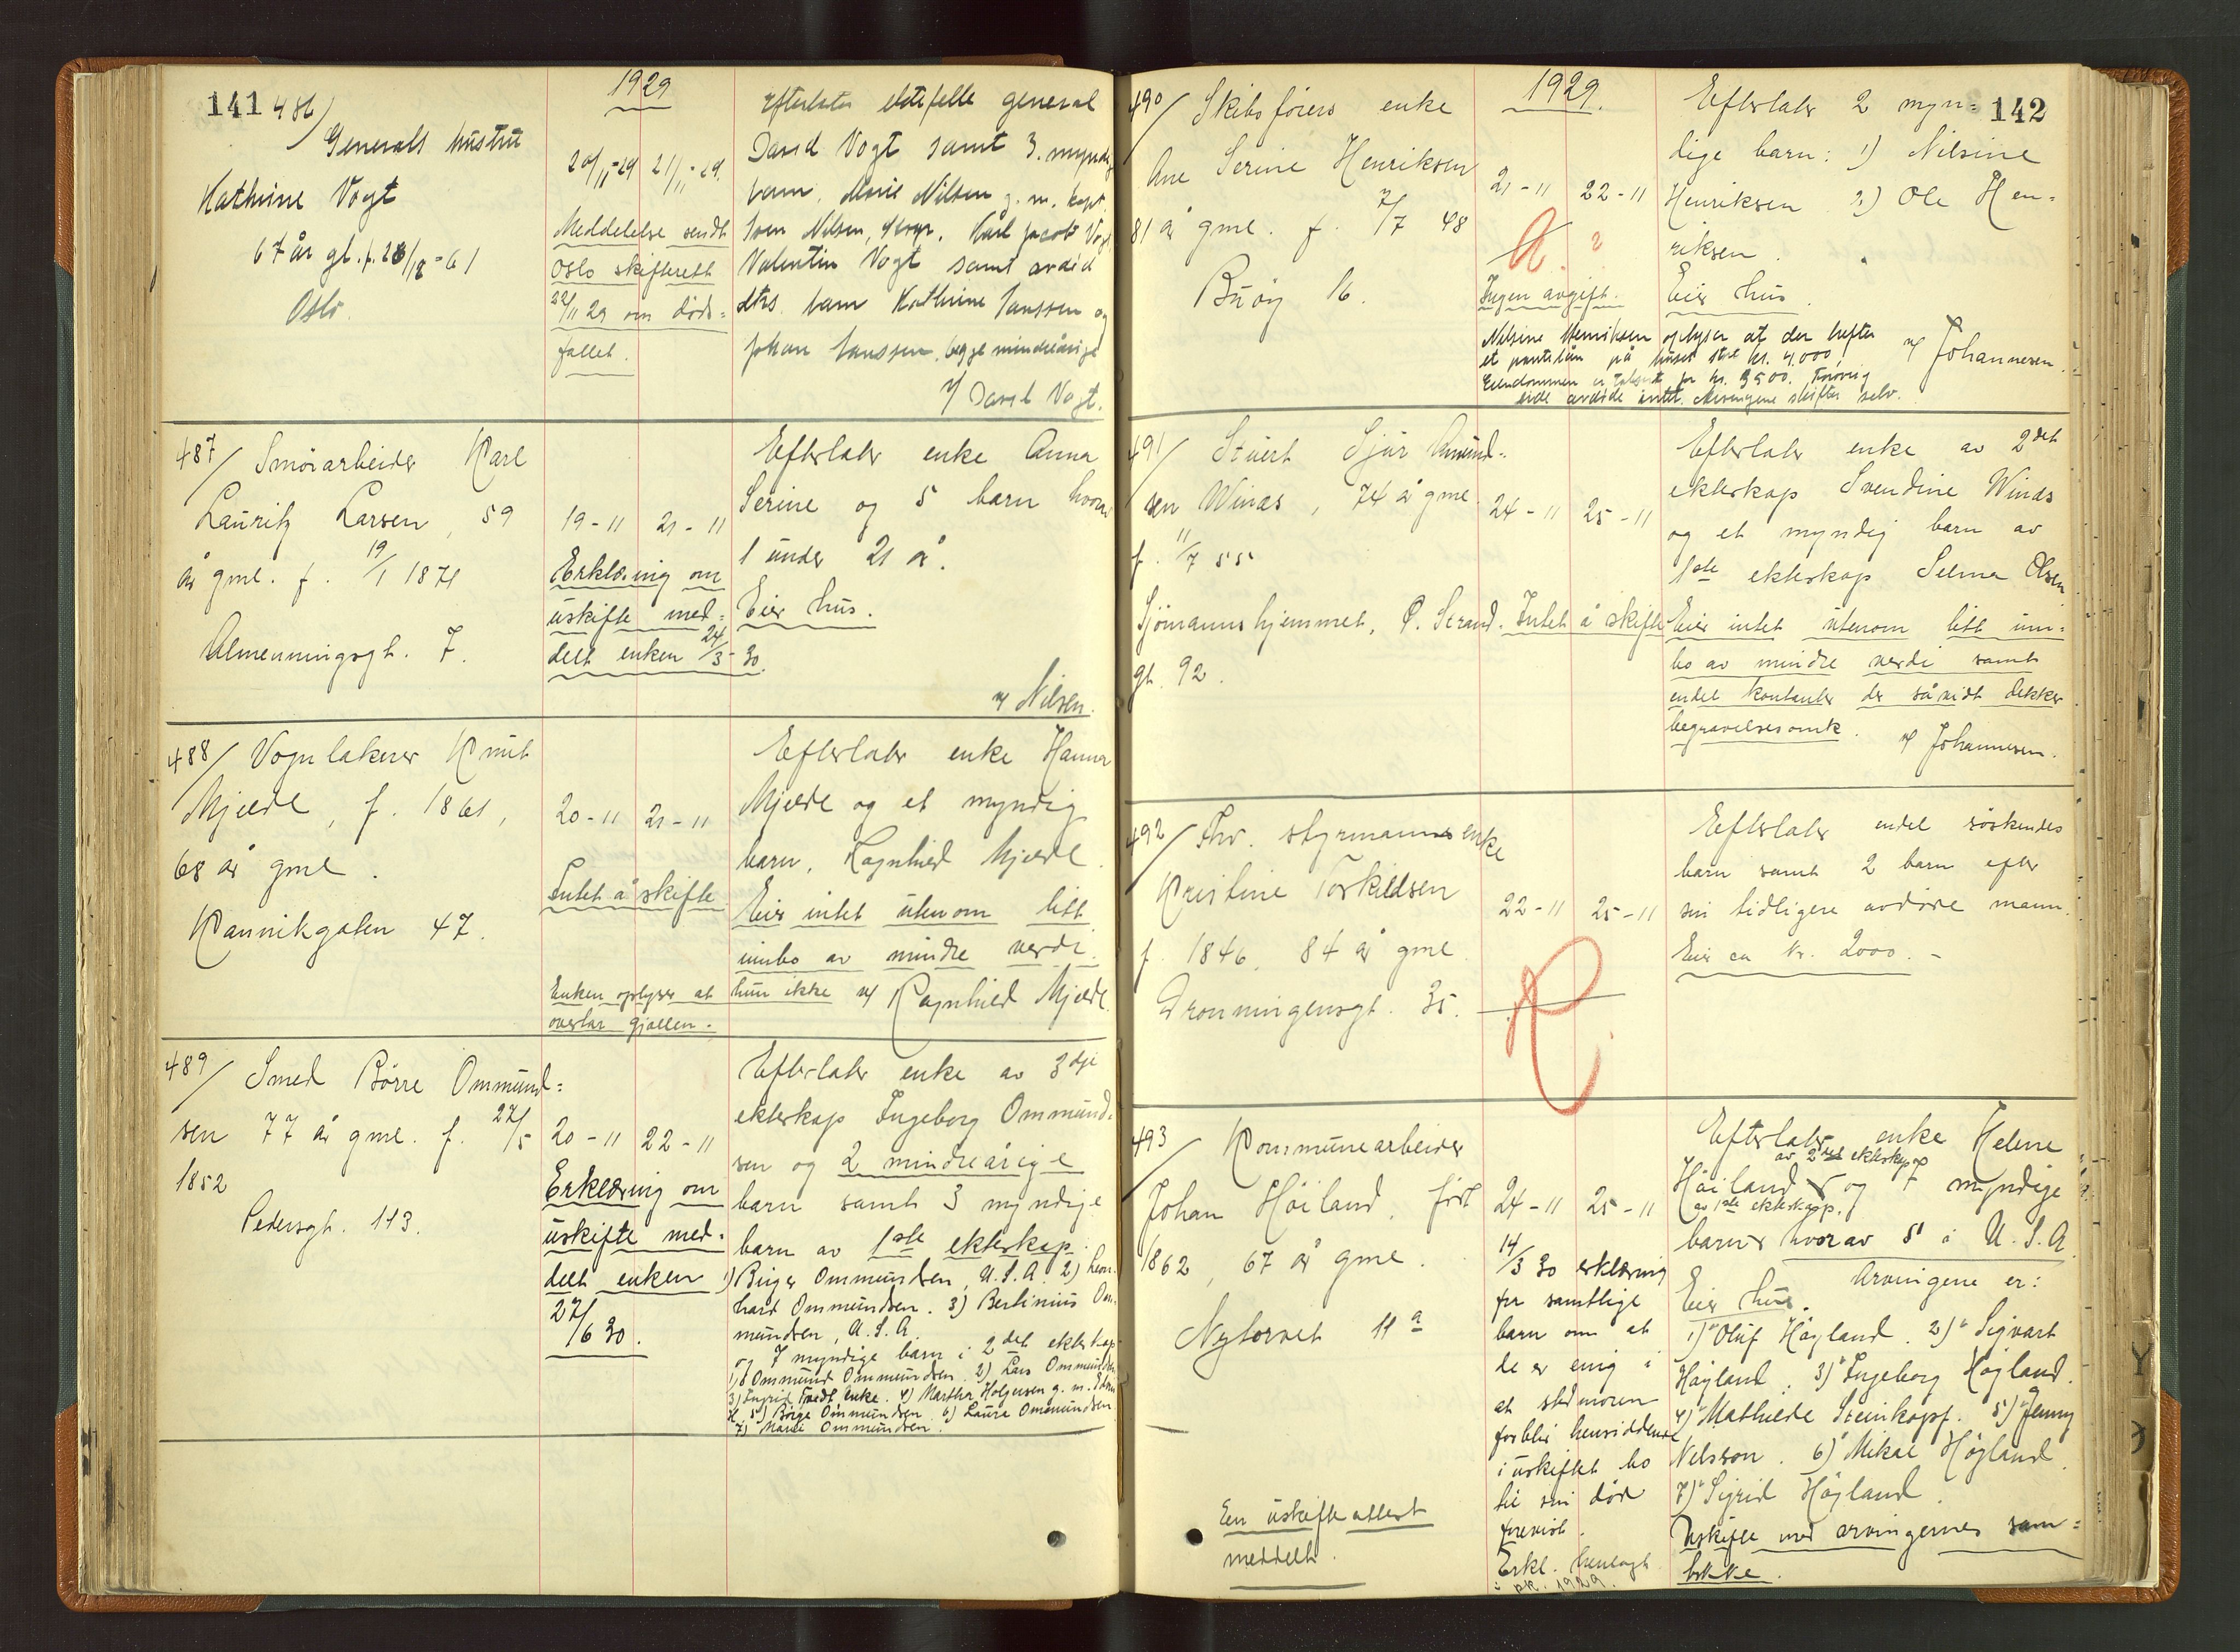 141
1929
486/
Generals hustru
Kathrine Vogt
67 år gl. f. 28/12-61
Oslo.
20/11-29 21/11-29.
Meddelelse sendt
Oslo skifterett
22/11 29 om døds=
fallet.
Efterlater ektefelle general
David Vogt samt 3 myndig
barn, Marie Nilsen g. m. kapt.
Karl Jacob Vogt
Valentin Vogt samt avdød
dtrs. barn Kathrine Janssen og
Johan Janssen, begge mindreårige
v/ David Vogt.
487/ Smörarbeider Karl
Lauritz Larsen, 59
år gml. f. 19/1 1870
Almenningsgt. 7.
19-11 21-11
Erklæring om
uskifte med=
delt enken 24/3-30.
Efterlater enke Anna
Serine og 5 barn hvorav
1 under 21 år.
Eier hus.
v/ Nilsen.
488/ Vognlakerer Knut
Mjelde, f. 1861,
68 år gml.
Kannikgaten 47.
20-11 21-11
Intet å skifte
Enken oplyser at hun ikke
overtar gjælden.
Efterlater enke Hanna
Mjelde og et myndig
barn, Ragnhild Mjelde.
Eier intet utenom litt
innbo av mindre verdi.
v/ Ragnhild Mjelde.
489/ Smed Börre Ommund=
sen 77 år gml. f. 27/5
1852
Pedersgt. 113.
20-11 22-11
Erklæring om
uskifte med=
delt enken
27/6 30.
Efterlater enke av 3dje
ekteskap Ingeborg Ommund=
sen og 2 mindreårige
barn samt 3 myndige
barn av 1ste ekteskap:
1) Birger Ommundsen, U.S.A. 2) Leon=
hard Ommundsen. 3) Bertinius Om=
mundsen, U.S.A.
og 7 myndige barn i 2det ekteskap
1) Ommund Ommundsen. 2) Lars Ommundsen
3) Ingrid Tvedt, enke. 4) Martha Holgersen g. m.
5) Börge Ommundsen. 6) Laura Ommundsen
7) Marie Ommundsen.
142
1929.
490/ Skibsförers enke
Ane Serine Henriksen
81 år gml. f. 7/7 48
Buöy 16.
21-11 22-11
Ingen avgift.
Nilsine Henriksen oplyser at der hefter
et pantelån på huset stort kr. 4.000,
Eiendommen er taksert for kr. 3500. Forövrig
eide avdöde intet. Arvingene skifter selv.
Efterlater 2 myn=
dige barn: 1) Nilsine
Henriksen 2) Ole Hen=
riksen.
Eier hus.
v/ Johannesen.
491/ Stuert Sjur Amund=
sen Winas, 74 år gml.
f. 11/7 55
Sjömannshjemmet, Ø. Strand=
gt. 92.
24-11 25-11
Intet å skifte
Efterlater enke av 2det
ekteskap Svendine Winas
og et myndig barn av
1ste ekteskap Selma Olsen
Eier intet utenom litt inn=
bo av mindre verdi samt
endel kontanter der såvidt dekker
begravelsesomk.
v/ Johannesen.
492/ Fhv. styrmanns enke
Kristine Torkildsen
f. 1846, 84 år gml.
Dronningensgt. 35.
22-11 25-11
Efterlater endel söskendes
barn samt 2 barn efter
sin tidligere avdöde mann.
Eier ca kr. 2000.-
493/ Kommunearbeider
Johan Höiland, födt
1862, 67 år gml.
Nytorvet 11a
En uskifteattest
meddelt.
24-11 25-11
14/3 30 erklæring
fra samtlige
barn om at
de er enig i
at stedmoren
forblir hensiddende
i uskiftet bo
til sin död
Erkl. henlagt
i 1929.
Efterlater enke Helene
av 2det ekteskap
Höiland og 7 myndige
av 1ste ekteskap.
barn, hvorav 5 i U.S.A.
Arvingene er:
Eier hus.
1) Oluf Höyland. 2) Sigvart
Höyland. 3) Ingeborg Höyland.
4) Mathilde Steinkopf. 5) Jenny
Nelsson. 6) Mikal Höyland.
7) Sigrid Höyland.
Uskifte med arvingernes sam=
tykke.